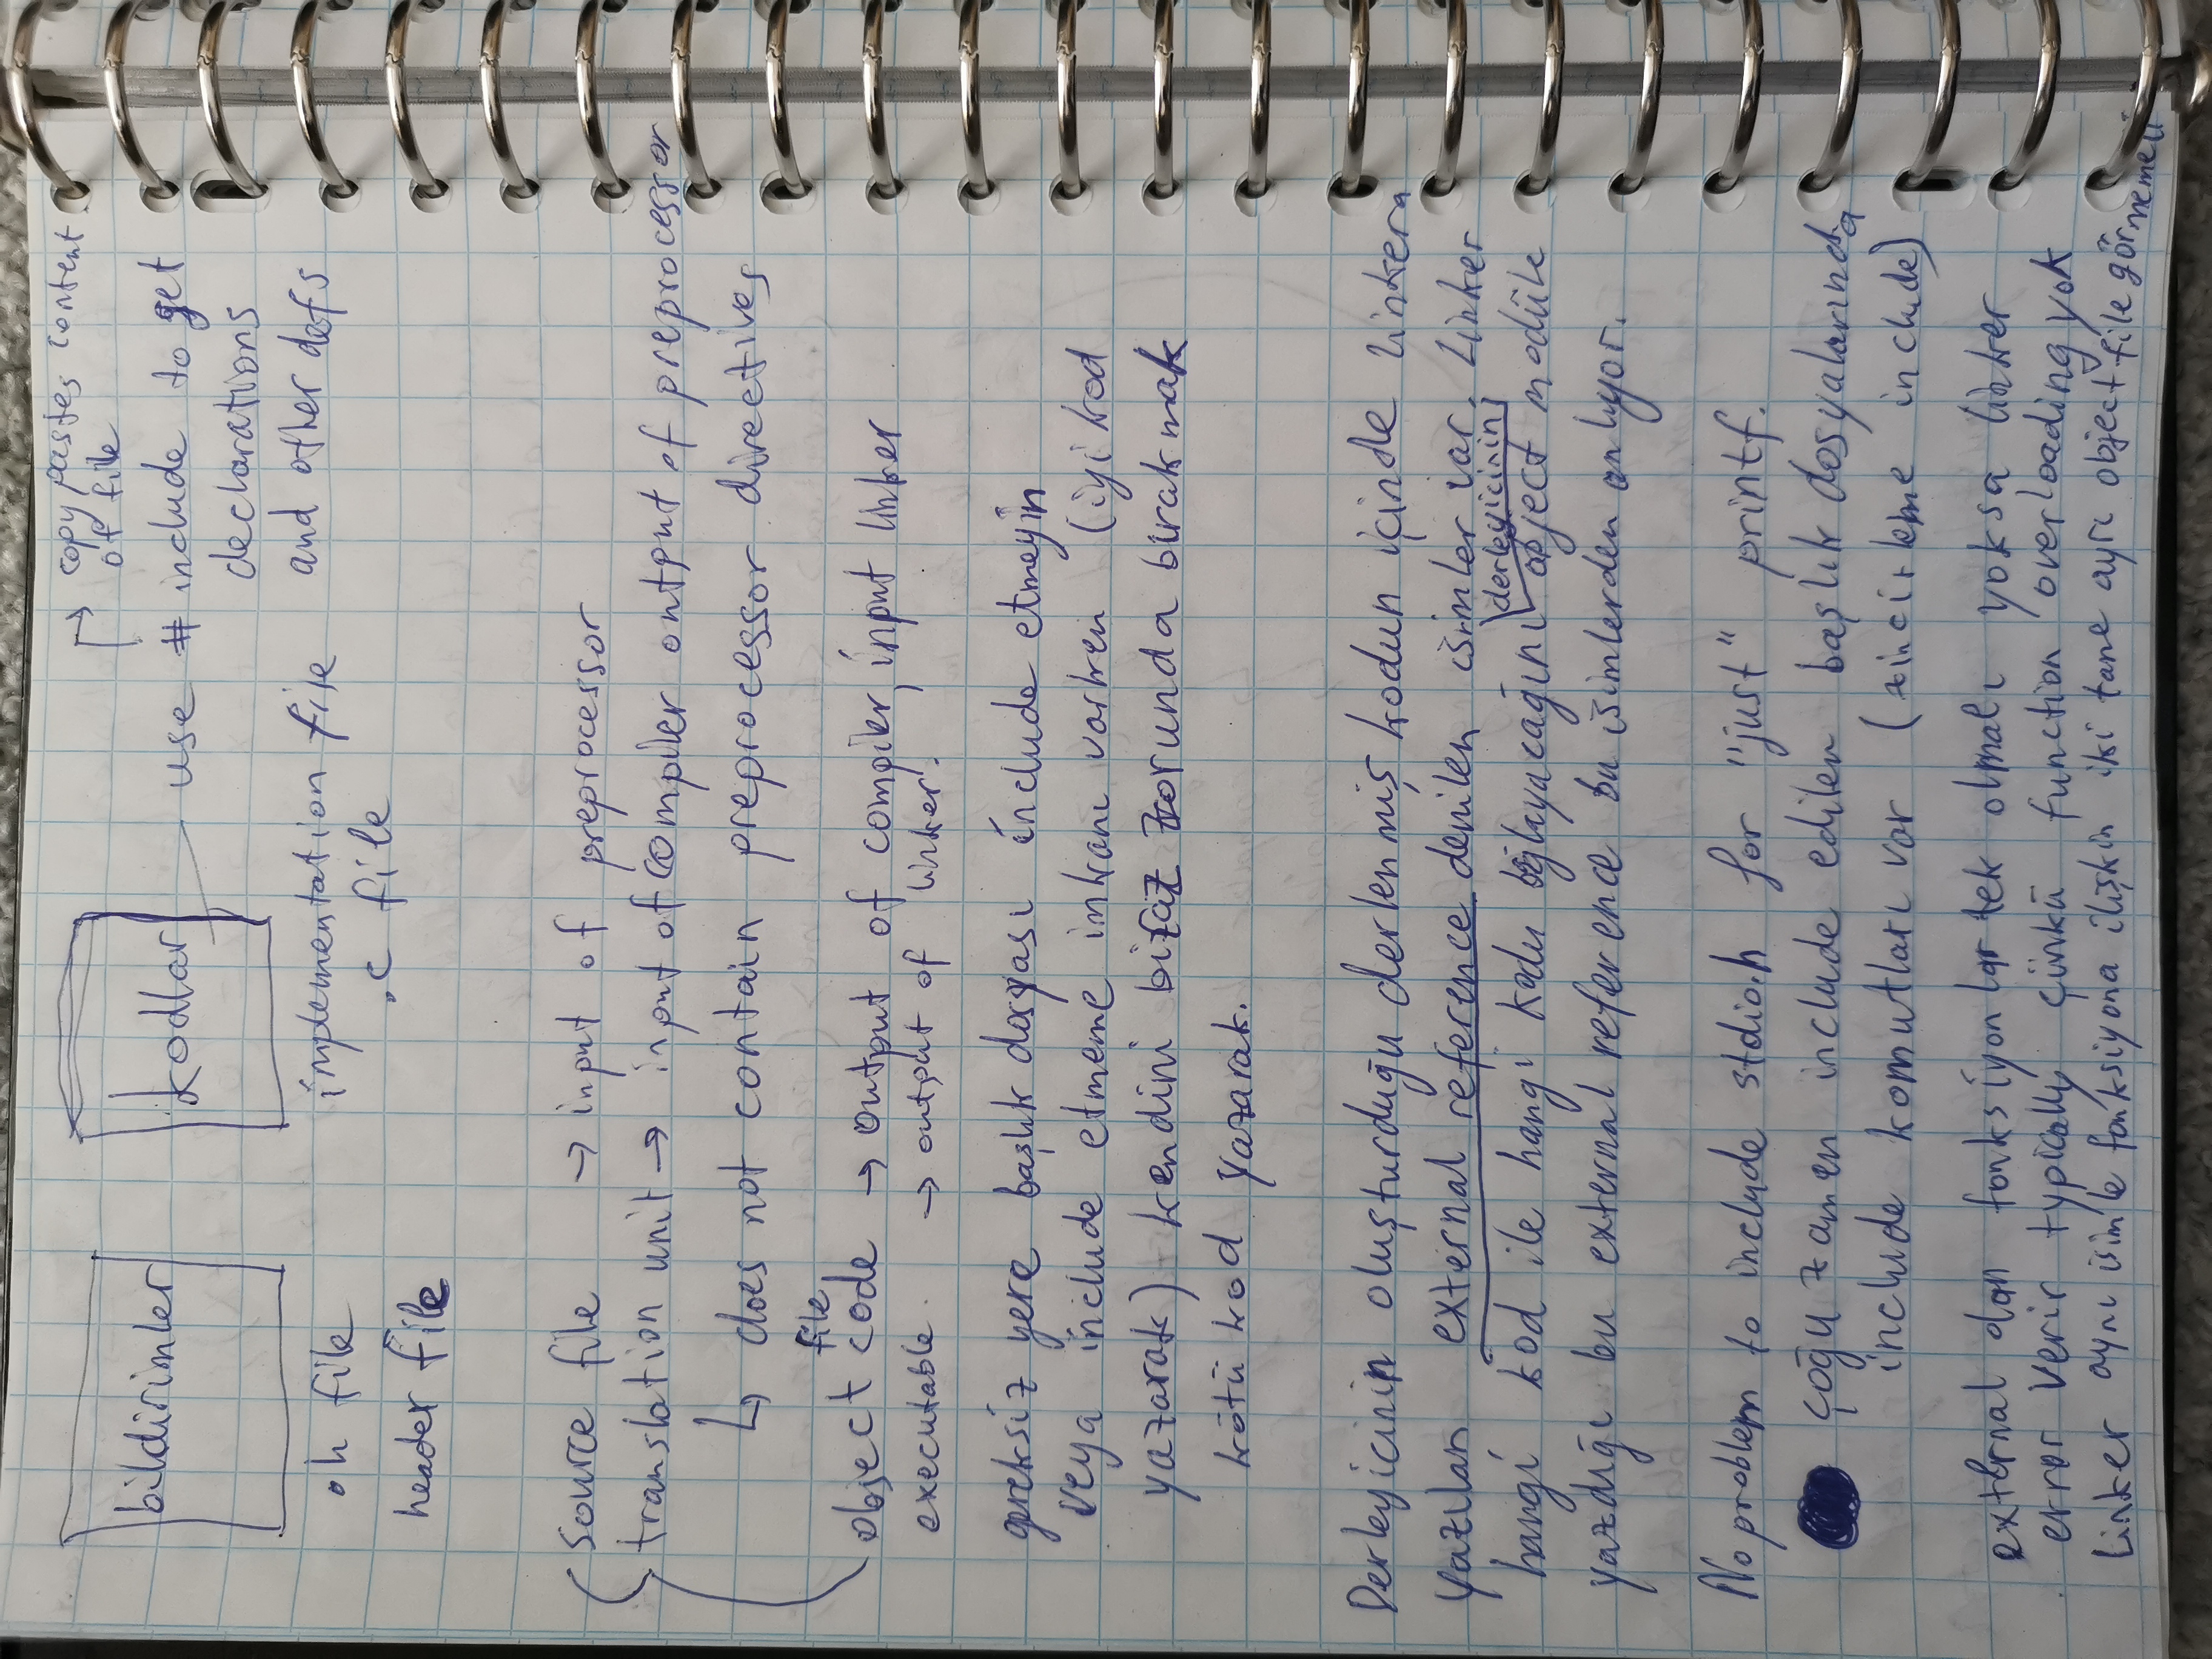 bildirimler
.h file
header file
kodlar
implementation file
.c file
copy pastes content
of file
use # include to get
declarations
and other defs
source file → input of preprocessor
translation unit → input of compiler output of preprocessor
↳ does not contain preprocessor directives
file
object code → output of compiler, input linker
executable → output of linker.
gereksiz yere başlık dosyası include etmeyin
veya include etmeme imkanı varken (iyi kod
yazarak) kendini biraz zorunda bırakmak
kötü kod yazarak.
Derleyicinin oluşturduğu derlenmiş kodun içinde linkera
yazılan external reference denilen isimler var. Linker
derleyicinin
hangi kod ile hangi kodu bğlayacağını object modüle
yazdığı bu external reference bu isimlerden anlıyor.
No problem to include stdio.h for "just" printf.
çoğu zaman include edilen başlık dosyalarında
include komutları var (zincirleme include)
external olan fonksiyonlar tek olmalı yoksa linker
error verir typically çünkü function overloading yok
Linker aynı isimle fonksiyona ilişkin iki tane ayrı object file görmemeli